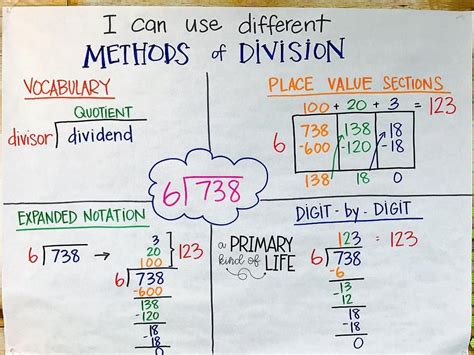 I can use different
METHODS of DIVISION
VOCABULARY
QUOTIENT
divisor dividend
PLACE VALUE SECTIONS
100 + 20 + 3 = 123
6 738 138 18
-600 -120 -18
138 18 0
6 738
EXPANDED NOTATION
6 738 →
3
20
100
} 123
6 738
-600
138
-120
18
-18
0
a PRIMARY
kind of LIFE
DIGIT-by-DIGIT
123 = 123
6 738
-6
13
-12
18
-18
0